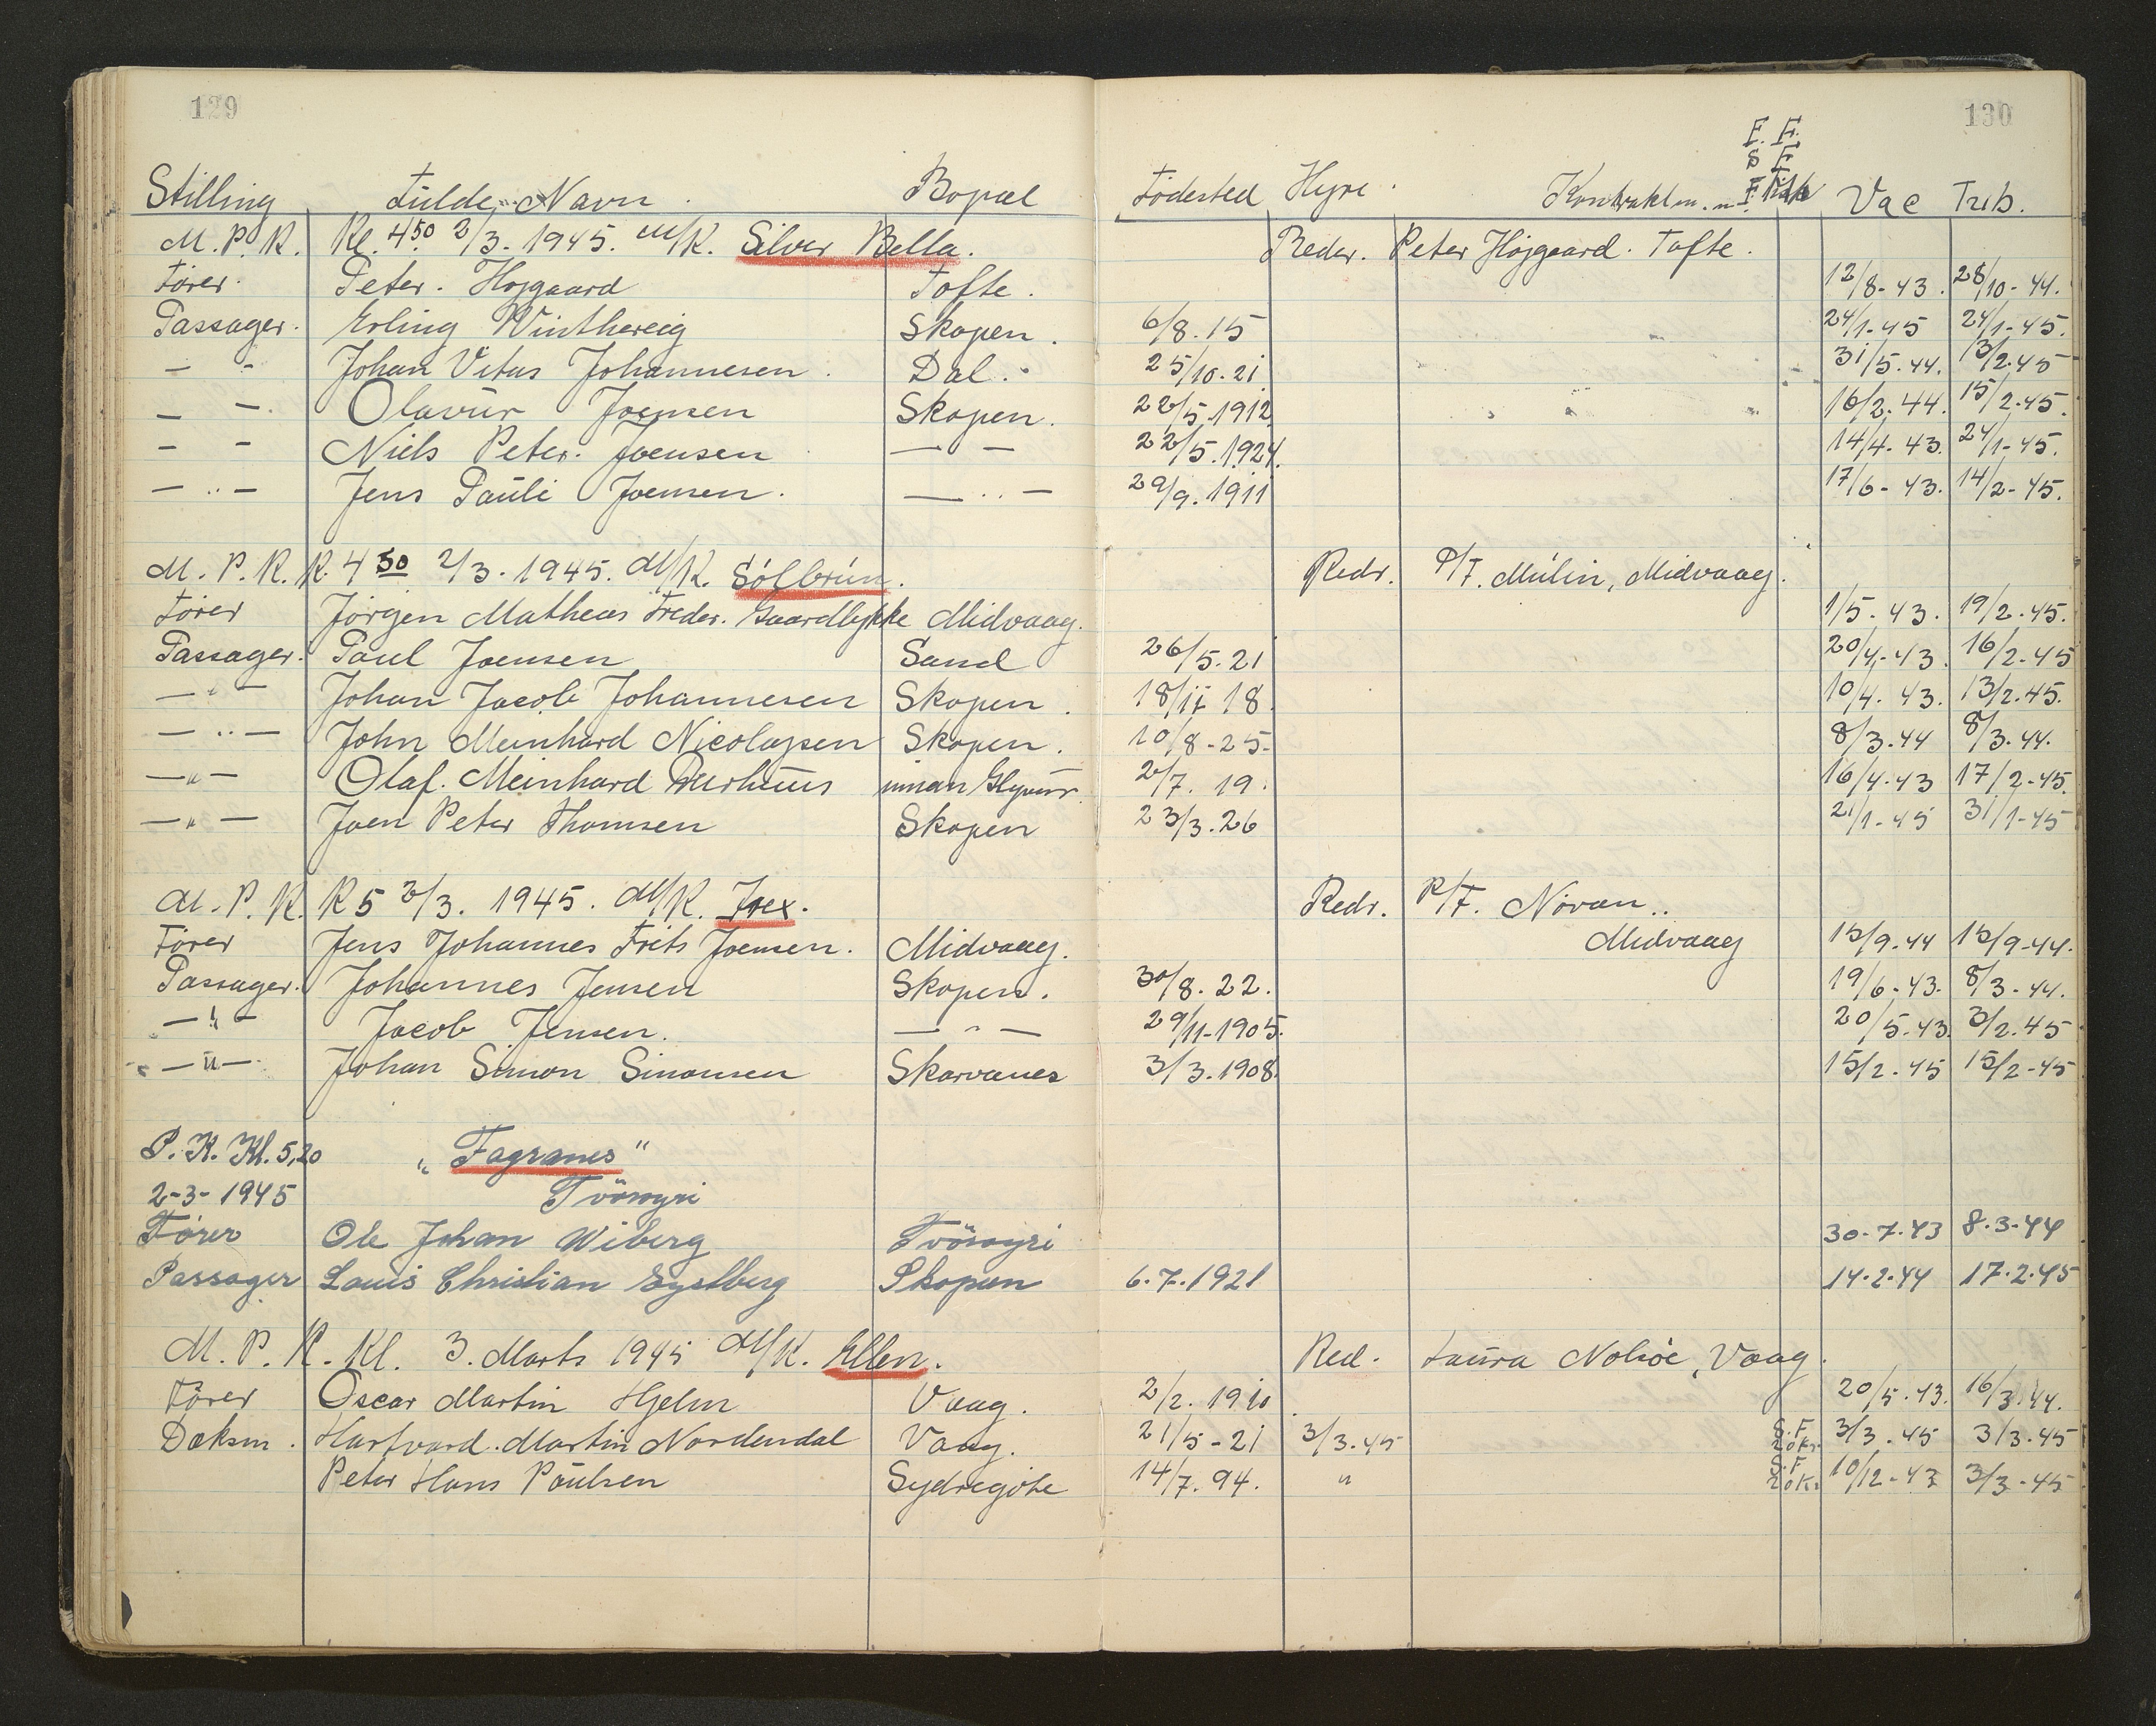 129
130
F. F.
S F.
Stilling Fulde Navn. Bopæl Födested Hyre. Kontrakt m. m. Vac Tub.
M. P. K. Kl. 4.50 2/3- 1945. M/K. Silver Bella. Reder. Peter Höjgaard. Tofte.
Förer. Peter. Hojgaard Tofte. 12/8-43. 28/10-44.
Passager. Erling Winthereig Skopen. 6/8. 15 24/1-45 24/1-45.
— - Johan Vitus Johannesen. Dal. 25/10-21 31/5.44. 13/2.45
— —. Olavur Joensen Skopen. 22/5.1912 16/2.44. 15/2.45.
- - Niels Peter. Joensen — - 22/5.1924. 14/4-43. 24/1-45.
— .. — Jens Pauli Joensen. — .. — 29/9.1911 17/6-43. 14/2-45.
M. P. K. K. 4 50 2/3. 1945. M/K. Sólbrún. Redr. P/F. Múlin, Midvaag.
Förer Jörgen Matheas Freder. Gaardlykke Midvaag. 1/5.43. 19/2.45.
Passager. Poul Joensen Sand 26/5.21 20/4-43. 16/2-45
— " — Johan Jacob Johannesen Skopen. 18/11 18. 10/4. 43. 13/2.45.
— .. — John Meinhard Nicolajsen Skopen. 10/8-25- 8/3.44 8/3.44.
— " — Olaf. Meinhard Durhuus innan Glyvur. 2/7. 19. 16/4.43 17/2-45.
— " — Joen Peter Thomsen Skopen 23/3.26 21/1-45 31/1-45
M. P. K. K 5 2/3. 1945. M/K. Irex. Redr. P/F. Növan..
Förer Jens Johannes Frits Joensen. Midvaag. Midvaag 15/9.44 15/9-44.
Passager. Johannes Jensen Skopen. 30/8. 22. 19/6-43. 8/3-44.
— " — Jacob Jensen. — " — 29/11-1905. 20/5.43. 3/2.45
— " — Johan Simon Simonsen Skarvanes 3/3.1908. 15/2-45 15/2-45
P. K. Kl. 5,20 „ Fagranes "
2-3-1945 Tvöroyri
Förer Ole Johan Wiberg Tvöroyri 30-7.43 8.3-44
Passager Louis Christian Eystberg Skopun 6.7.1921 14.2.44 17.2.45
M. P. K. Kl. 3. Marts 1945 M/K. Ellen. Red. Laura Nolsöe, Vaag.
Förer Oscar Martin Hjelm Vaag. 2/2. 1910 20/5.43. 16/3.44.
Dæksm. Hartvard. Martin Nordendal Vaag. 21/5-21 3/3.45 S.F. 20Kr. 3/3.45 3/3.45
Peter Hans Poulsen Sydregöte 14/7. 94. " S.F. 20Kr. 10/12-43 3/3-45